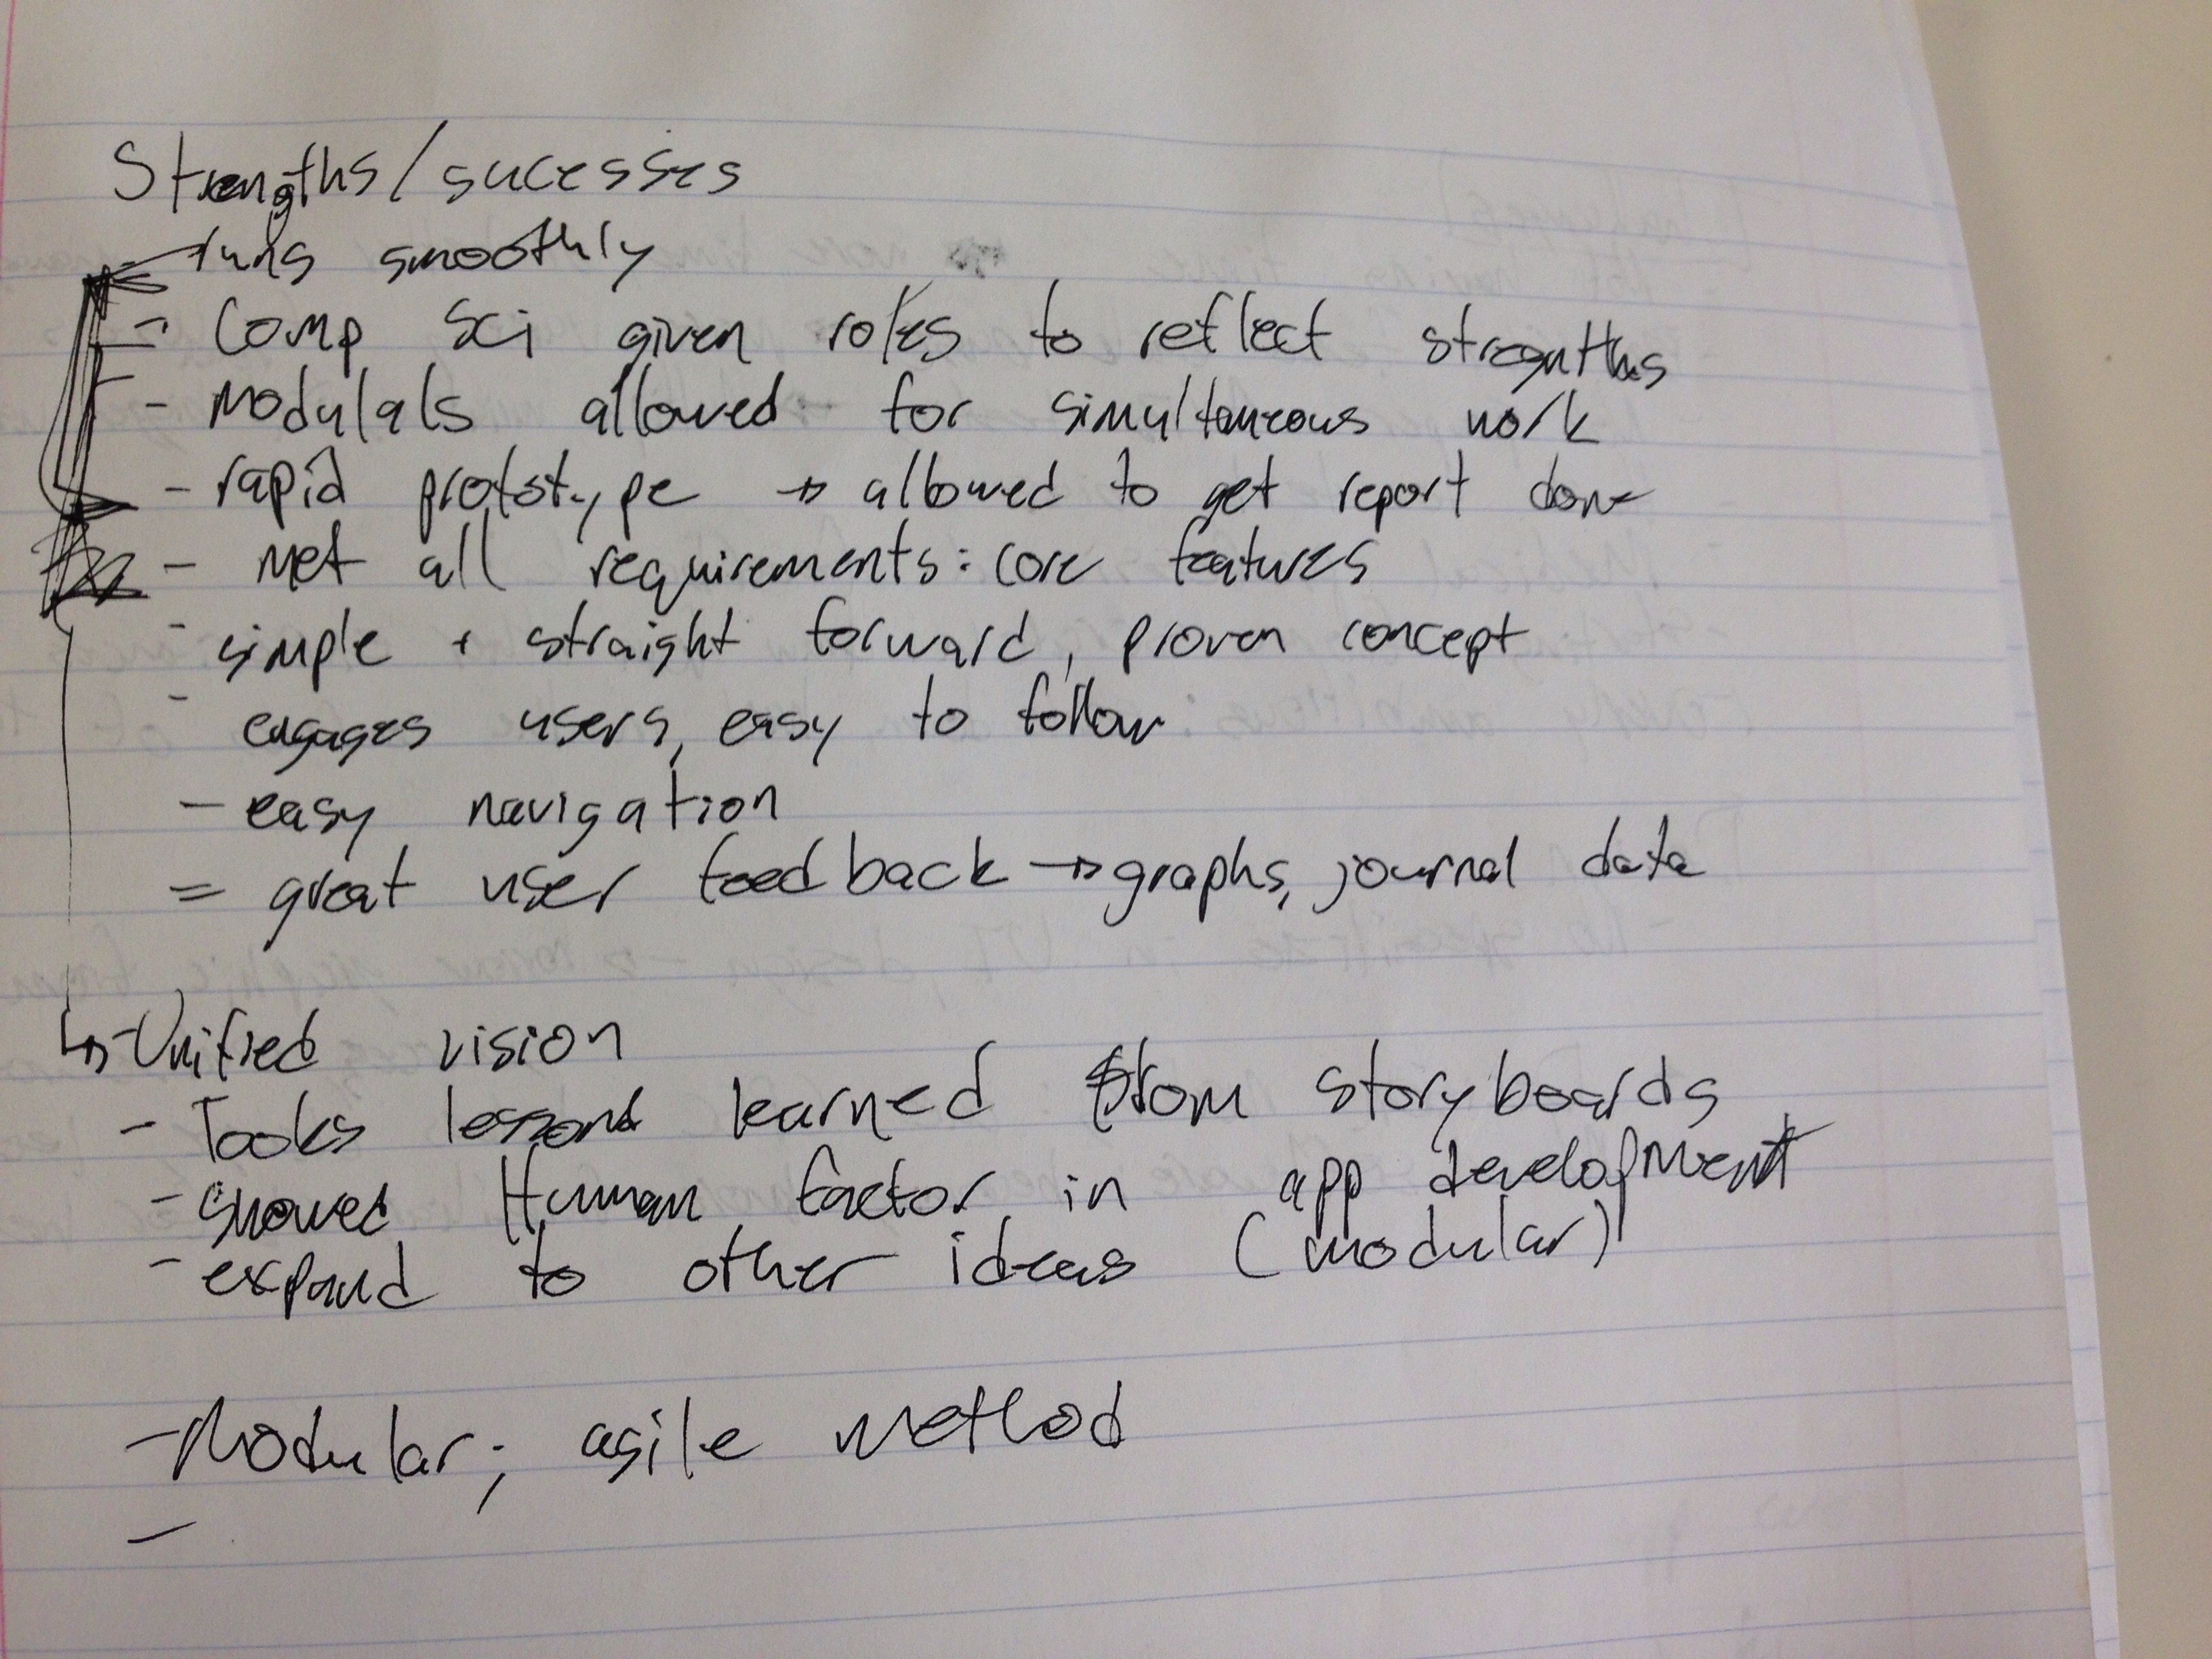 Strengths/successes
- runs smoothly
- Comp Sci given roles to reflect strengths
- Modulals allowed for simultaneous work
- rapid prototype → allowed to get report done
- Met all requirements: core features
- simple + straight forward, proven concept
- engages users, easy to follow
- easy navigation
= great user feedback → graphs, journal data
↳ - Unified vision
- Took lessons learned from storyboards
- Human factor in app development
- expand to other ideas (modular)
- Modular; agile method
-